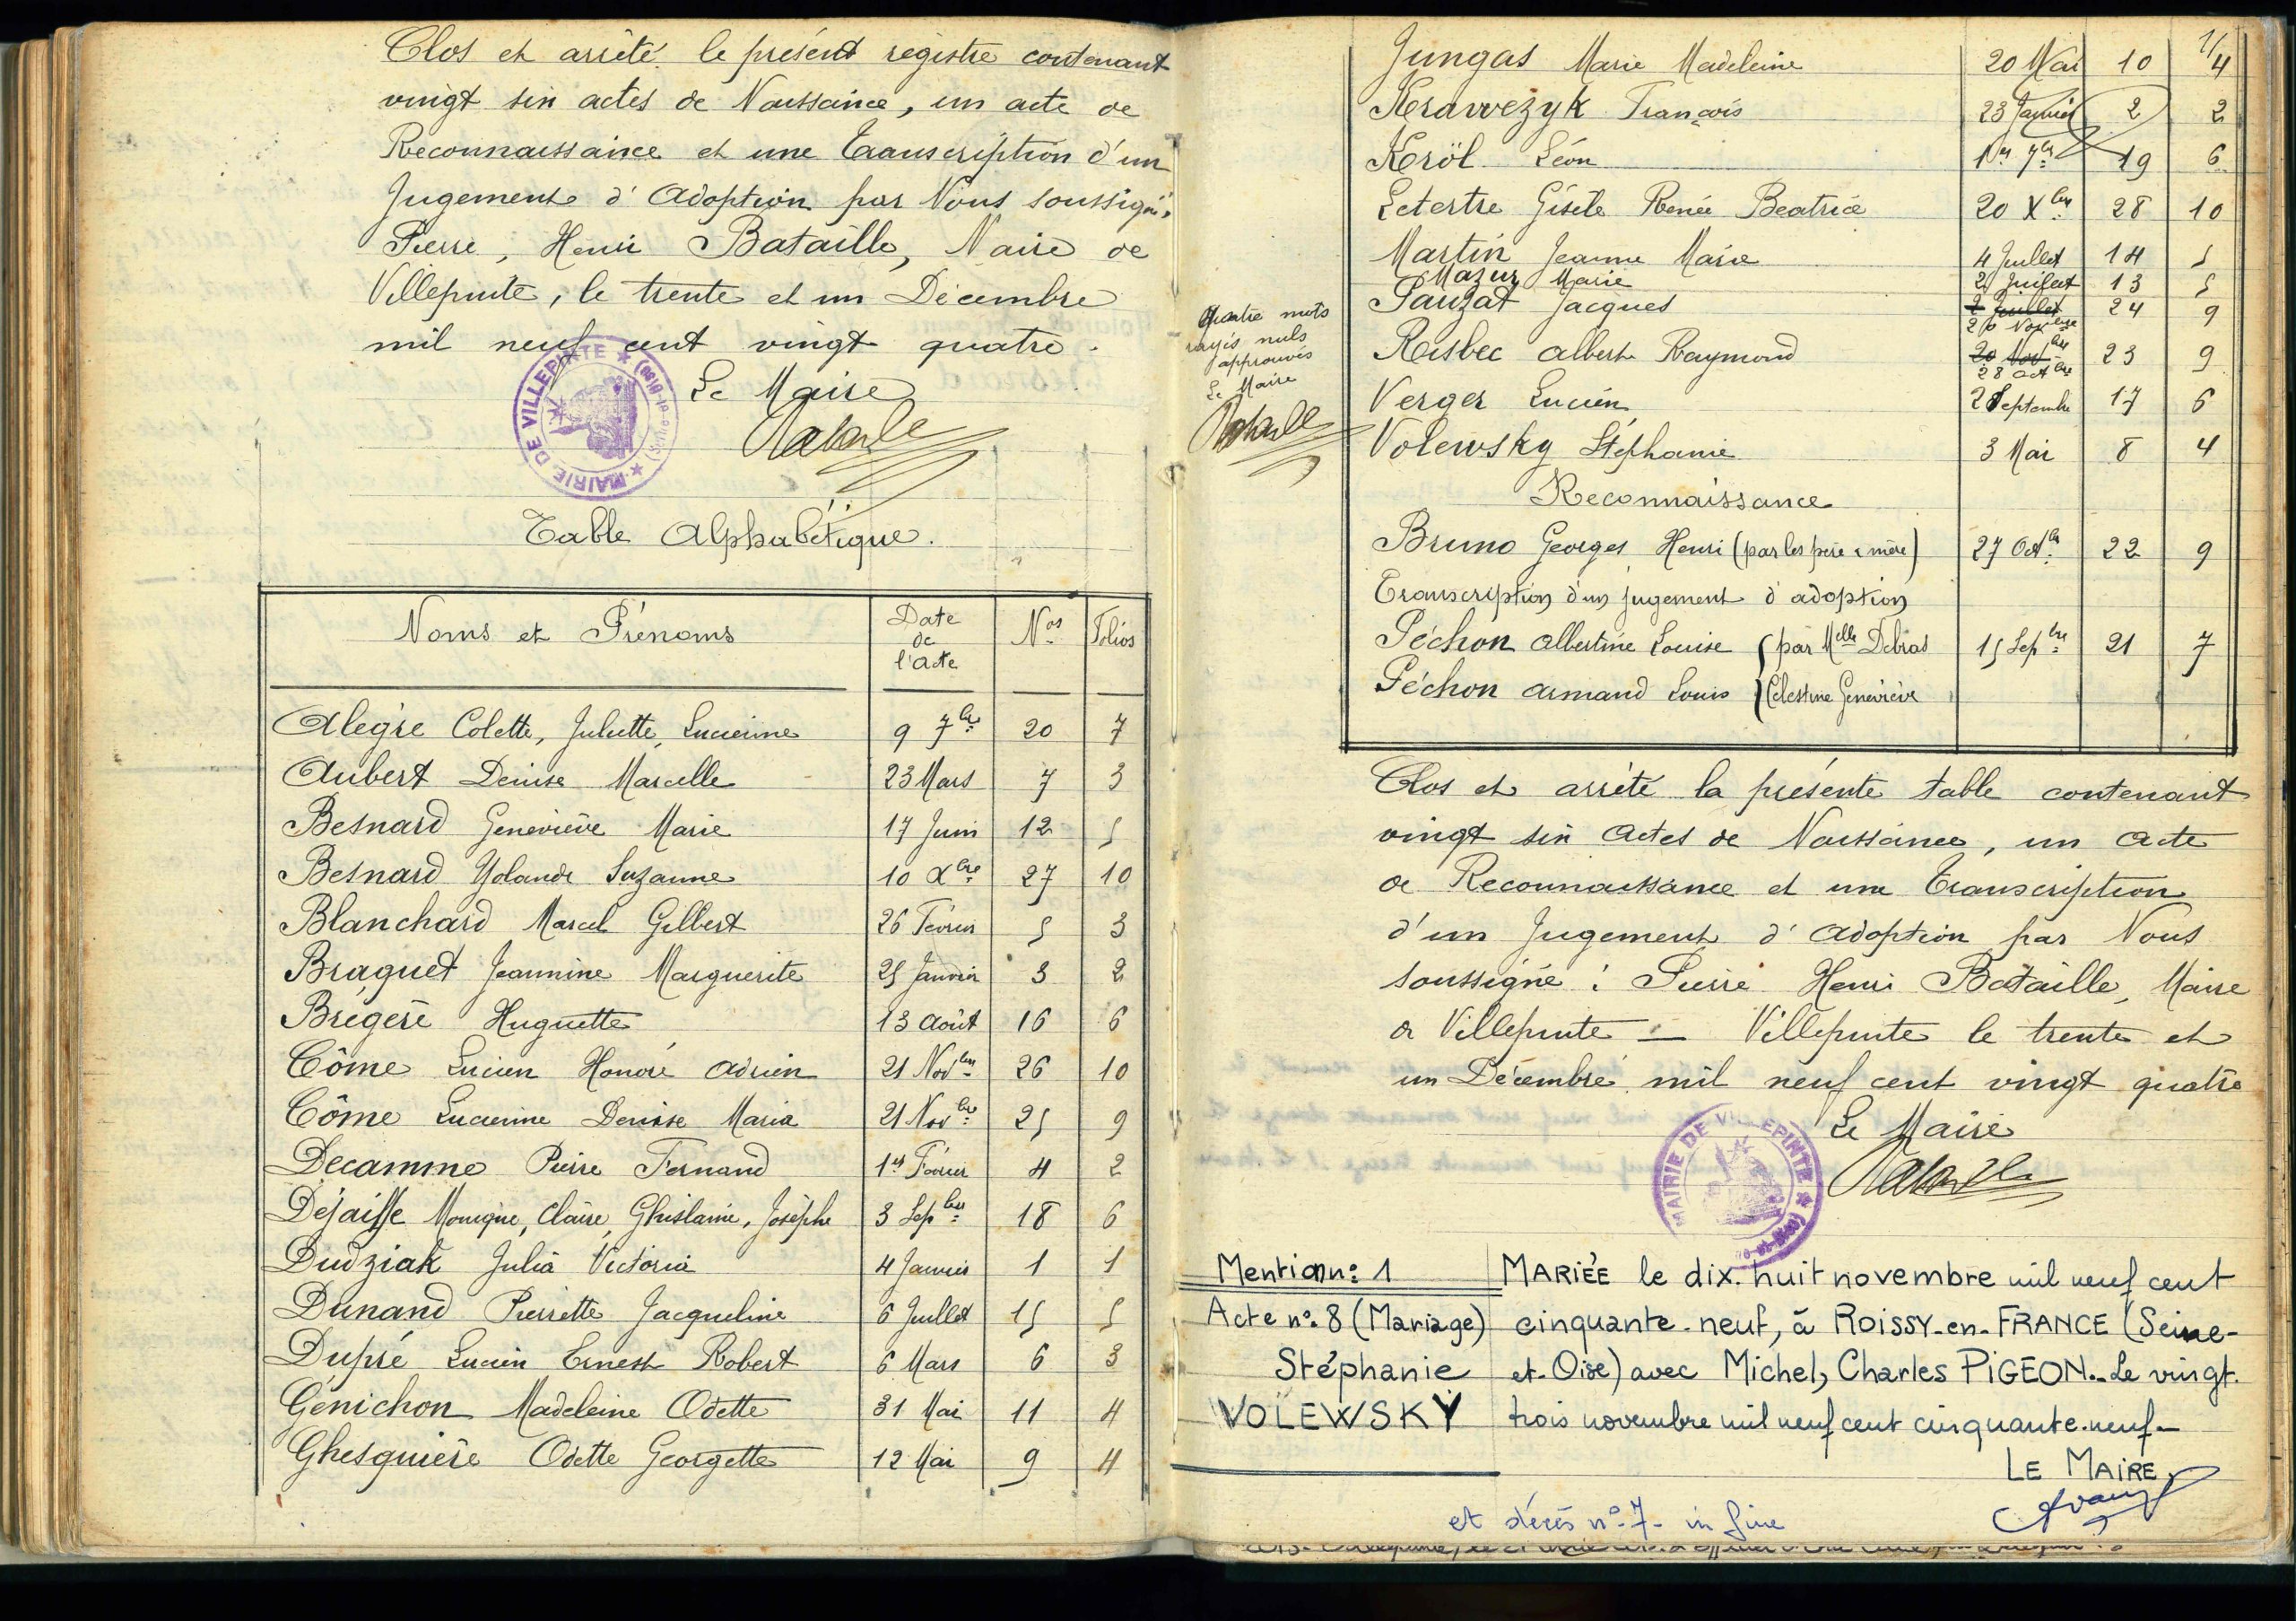 Clos et arrêté le présent registre contenant
vingt six actes de Naissance, un acte de
Reconnaissance et une Transcription d'un
Jugement d'Adoption par Nous soussigné,
Pierre, Henri Bataille, Maire de
Villepinte, le trente et un Décembre
mil neuf cent vingt quatre.
Le Maire
MAIRIE DE VILLEPINTE
Table Alphabétique.
Noms et Prénoms | Date de l'Acte | Nos | Folios
Alègre Colette, Juliette, Lucienne | 9 7bre | 20 | 7
Aubert Denise Marcelle | 23 Mars | 7 | 3
Besnard Geneviève Marie | 17 Juin | 12 | 5
Besnard Yolande Suzanne | 10 Xbre | 27 | 10
Blanchard Marcel Gilbert | 26 Février | 5 | 3
Braguet Jeannine Marguerite | 25 Janvier | 3 | 2
Brégère Huguette | 13 Août | 16 | 6
Côme Lucien Honoré Adrien | 21 Novbre | 26 | 10
Côme Lucienne Denise Maria | 21 Novbre | 25 | 9
Decamme Pierre Fernand | 1er Février | 4 | 2
Déjaiffe Monique, Claire, Ghislaine, Josèphe | 3 Sepbre | 18 | 6
Dudziak Julia Victoria | 4 Janvier | 1 | 1
Dunand Pierrette Jacqueline | 6 Juillet | 15 | 5
Dupré Lucien Ernest Robert | 6 Mars | 6 | 3
Génichon Madeleine Odette | 31 Mai | 11 | 4
Ghesquière Odette Georgette | 12 Mai | 9 | 4
Jungas Marie Madeleine | 20 Mai | 10 | 4
Krawezyk François | 23 Janvier | 2 | 2
Kröl Léon | 1er 7bre | 19 | 6
Letertre Gisèle Renée Beatrice | 20 Xbre | 28 | 10
Martin Jeanne Marie | 4 Juillet | 14 | 5
Mazur Marie | 2 Juillet | 13 | 5
Pauzat Jacques | 2 Juillet 20 Novbre | 24 | 9
Risbec Albert Raymond | 20 Novbre 28 Octbre | 23 | 9
Verger Lucien | 2 Septembre | 17 | 6
Volewsky Stéphanie | 3 Mai | 8 | 4
Quatre mots
rayés nuls
approuvés
Le Maire
Reconnaissance
Bruno Georges Henri (par les père & mère) | 27 Octbre | 22 | 9
Transcription d'un jugement d'adoption
Péchon Albertine Louise (par Melle Debras | 15 Sepbre | 21 | 7
Péchon Armand Louis (Célestine Geneviève
Clos et arrêté la présente table contenant
vingt six Actes de Naissance, un Acte
de Reconnaissance et une Transcription
d'un Jugement d'Adoption par Nous
soussigné : Pierre Henri Bataille, Maire
de Villepinte — Villepinte le trente et
un Décembre mil neuf cent vingt quatre
Le Maire
MAIRIE DE VILLEPINTE
Mention n° 1
Acte n° 8 (Mariage)
Stéphanie
VOLEWSKY
MARIÉE le dix-huit novembre mil neuf cent
cinquante-neuf, à ROISSY-en-FRANCE (Seine-
et-Oise) avec Michel, Charles PIGEON.- Le vingt-
trois novembre mil neuf cent cinquante-neuf-
LE MAIRE,
et décès n° 7 - in fine